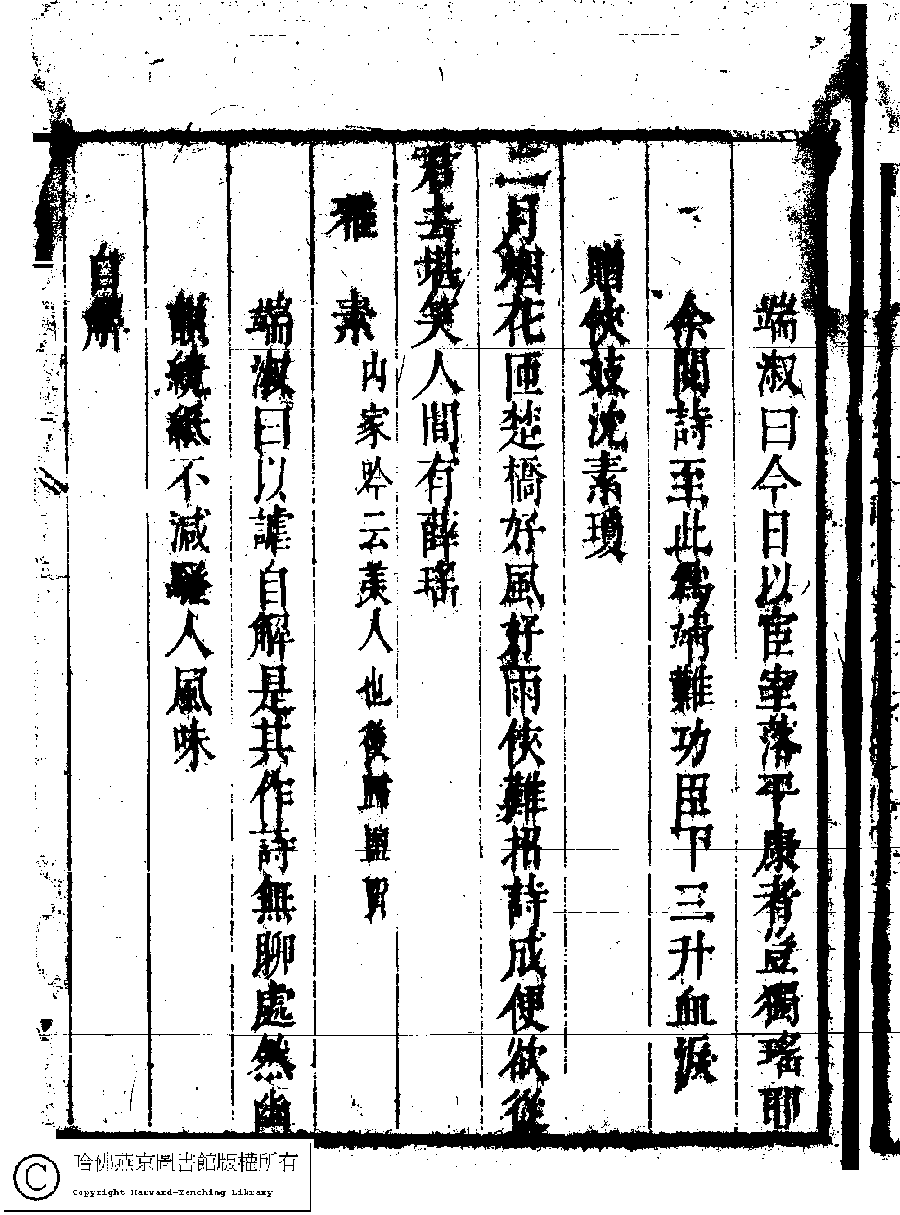 端淑曰今日以宦室落平康者豈獨瑤耶
余閱詩至此為端難功毌下三升血淚
贈俠妓沈素瓊
二月烟花匝楚橋好風好雨俠難招詩成便欲從
君去堪笑人間有薛瑤
雅素 山家吟云萊人也後歸鹽賈
端淑曰以謔自解是其作詩無聊處然幽
韻繞紙不減騷人風味
自解
哈佛燕京圖書館版權所有
Copyright Harvard-Yenching Library